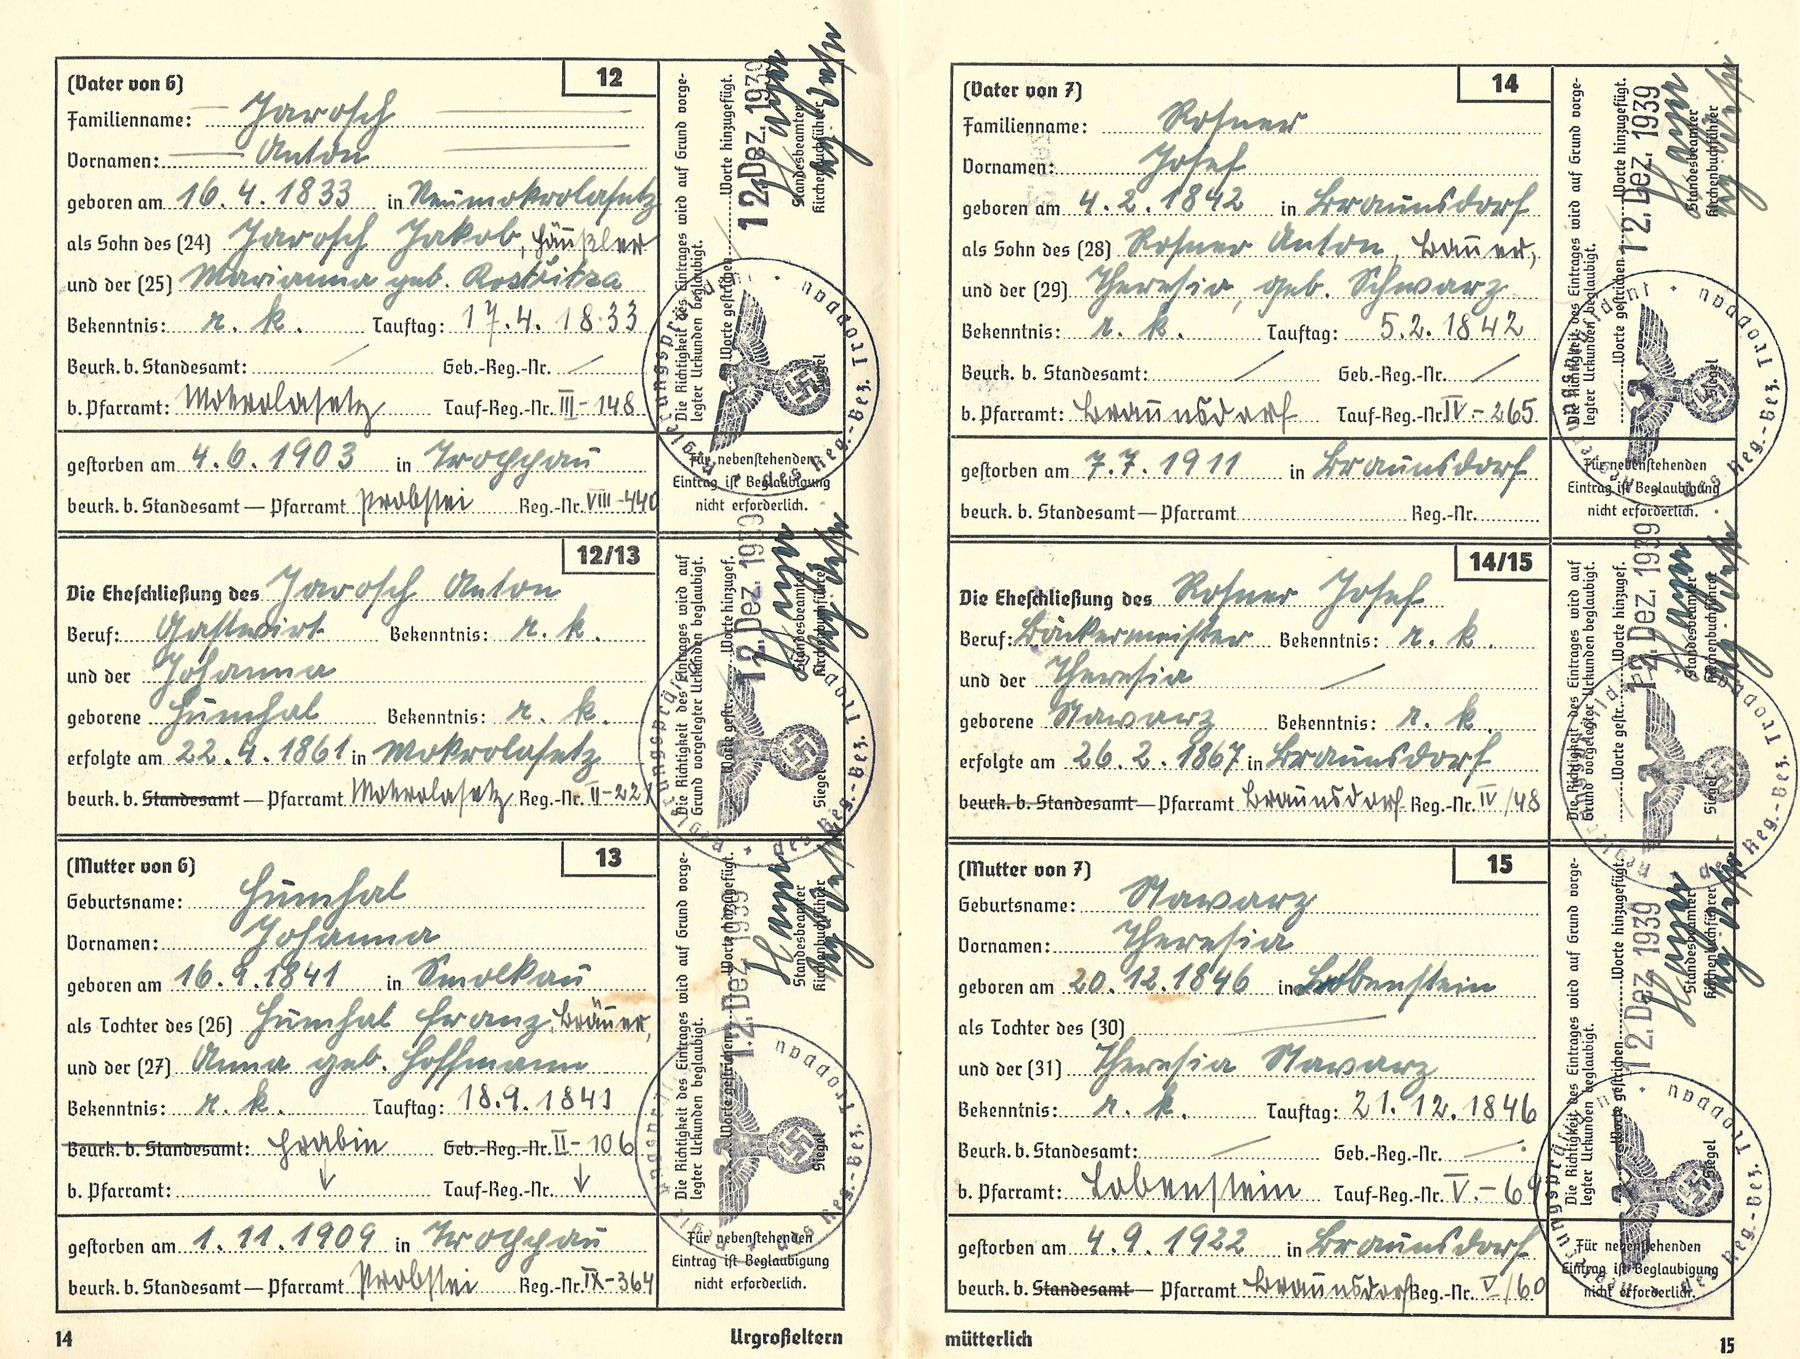 (Vater von 6) 12
Familienname: Jarosch
Vornamen: Anton
geboren am 16.4.1833 in Neumokrolasetz
als Sohn des (24) Jarosch Jakob, Häußler
und der (25) Marianna geb.
Bekenntnis: r. k. Tauftag: 17.4.1833
Beurk. b. Standesamt: Geb.-Reg.-Nr.
b. Pfarramt: Mokrolasetz Tauf-Reg.-Nr. III-148
gestorben am 4.6.1903 in Troppau
beurk. b. Standesamt — Pfarramt Probstei Reg.-Nr. VIII-440
12/13
Die Eheschließung des Jarosch Anton
Beruf: Gastwirt Bekenntnis: r. k.
und der Johanna
geborene Humhal Bekenntnis: r. k.
erfolgte am 22.4.1861 in Mokrolasetz
beurk. b. Standesamt — Pfarramt Mokrolasetz Reg.-Nr. II-221
(Mutter von 6) 13
Geburtsname: Humhal
Vornamen: Johanna
geboren am 16.9.1841 in Smolkau
als Tochter des (26) Humhal Franz, Bräuer,
und der (27) Anna geb. Hoffmann
Bekenntnis: r. k. Tauftag: 18.9.1841
Beurk. b. Standesamt: Hrabin Geb.-Reg.-Nr. II-106
b. Pfarramt: Tauf-Reg.-Nr.
gestorben am 1.11.1909 in Troppau
beurk. b. Standesamt — Pfarramt Probstei Reg.-Nr. IX-364
Die Richtigkeit des Eintrages wird auf Grund vorge-
legter Urkunden beglaubigt.
Worte gestrichen Worte hinzugefügt.
12. Dez. 1939
Standesbeamter
Kirchenbuchführer
Siegel
Regierungspräsident des Reg.-Bez. Troppau
Für nebenstehenden
Eintrag ist Beglaubigung
nicht erforderlich.
Die Richtigkeit des Eintrages wird auf
Grund vorgelegter Urkunden beglaubigt.
Worte gestr. Worte hinzugef.
12. Dez. 1939
Standesbeamter
Kirchenbuchführer
Siegel
Regierungspräsident des Reg.-Bez. Troppau
Die Richtigkeit des Eintrages wird auf Grund vorge-
legter Urkunden beglaubigt.
Worte gestrichen Worte hinzugefügt.
12. Dez. 1939
Standesbeamter
Kirchenbuchführer
Siegel
Regierungspräsident des Reg.-Bez. Troppau
Für nebenstehenden
Eintrag ist Beglaubigung
nicht erforderlich.
14 Urgroßeltern
(Vater von 7) 14
Familienname: Rosner
Vornamen: Josef
geboren am 4.2.1842 in Braunsdorf
als Sohn des (28) Rosner Anton, Bauer,
und der (29) Theresia, geb. Schwarz
Bekenntnis: r. k. Tauftag: 5.2.1842
Beurk. b. Standesamt: Geb.-Reg.-Nr.
b. Pfarramt: Braunsdorf Tauf-Reg.-Nr. IV-265
gestorben am 7.7.1911 in Braunsdorf
beurk. b. Standesamt — Pfarramt Reg.-Nr.
14/15
Die Eheschließung des Rosner Josef
Beruf: Bäckermeister Bekenntnis: r. k.
und der Theresia
geborene Stawarz Bekenntnis: r. k.
erfolgte am 26.2.1867 in Braunsdorf
beurk. b. Standesamt — Pfarramt Braunsdorf Reg.-Nr. IV/48
(Mutter von 7) 15
Geburtsname: Stawarz
Vornamen: Theresia
geboren am 20.12.1846 in Lobenstein
als Tochter des (30)
und der (31) Theresia Stawarz
Bekenntnis: r. k. Tauftag: 21.12.1846
Beurk. b. Standesamt: Geb.-Reg.-Nr.
b. Pfarramt: Lobenstein Tauf-Reg.-Nr. V.-69
gestorben am 4.9.1922 in Braunsdorf
beurk. b. Standesamt — Pfarramt Braunsdorf Reg.-Nr. V/60
Die Richtigkeit des Eintrages wird auf Grund vorge-
legter Urkunden beglaubigt.
Worte gestrichen Worte hinzugefügt.
12. Dez. 1939
Standesbeamter
Kirchenbuchführer
Siegel
Regierungspräsident des Reg.-Bez. Troppau
Für nebenstehenden
Eintrag ist Beglaubigung
nicht erforderlich.
Die Richtigkeit des Eintrages wird auf
Grund vorgelegter Urkunden beglaubigt.
Worte gestr. Worte hinzugef.
12. Dez. 1939
Standesbeamter
Kirchenbuchführer
Siegel
Regierungspräsident des Reg.-Bez. Troppau
Die Richtigkeit des Eintrages wird auf Grund vorge-
legter Urkunden beglaubigt.
Worte gestrichen Worte hinzugefügt.
12. Dez. 1939
Standesbeamter
Kirchenbuchführer
Siegel
Regierungspräsident des Reg.-Bez. Troppau
Für nebenstehenden
Eintrag ist Beglaubigung
nicht erforderlich.
mütterlich 15